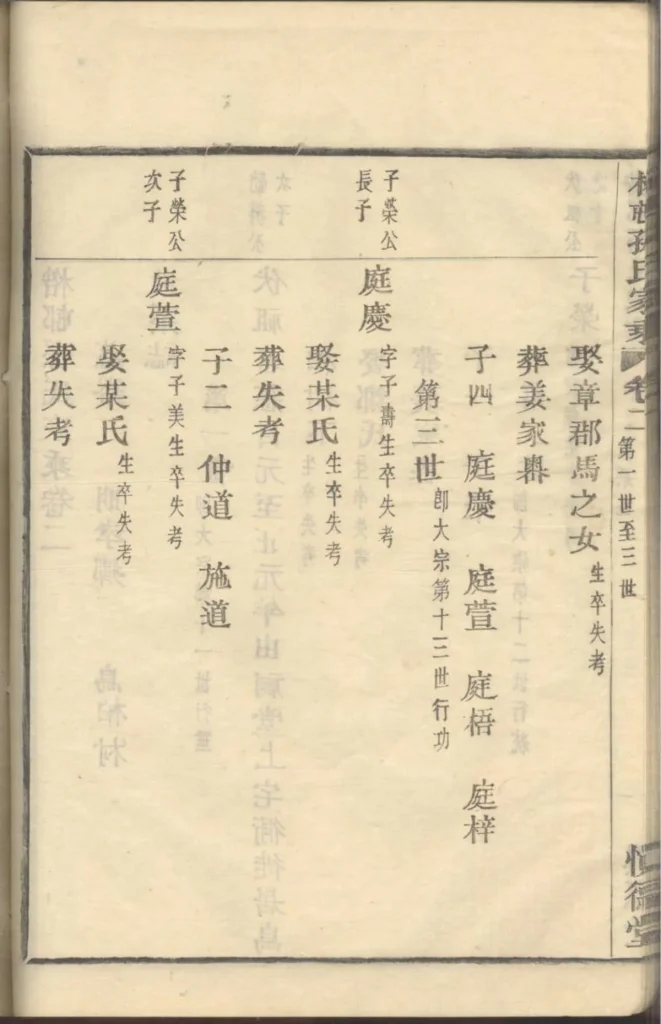 孫氏家乘 卷二 第一世至三世 德堂
娶章郡馬之女 生卒失考
葬姜家嶴
子四 庭慶 庭萱 庭梧 庭梓
第三世 即大宗第十三世行功
子榮公
長子
庭慶 字子壽生卒失考
娶某氏 生卒失考
葬失考
子二 仲道 施道
子榮公
次子
庭萱 字子美生卒失考
娶某氏 生卒失考
葬失考